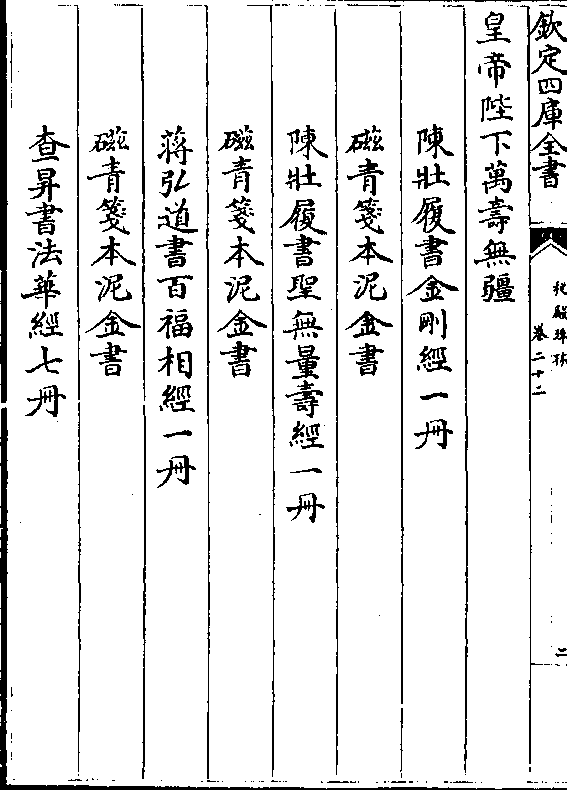 欽定四庫全書
卷二十二
二
皇帝陛下萬壽無疆
陳壯履書金剛經一冊
磁青箋本泥金書
陳壯履書聖無量壽經一冊
磁青箋本泥金書
蔣弘道書百福相經一冊
磁青箋本泥金書
查昇書法華經七冊